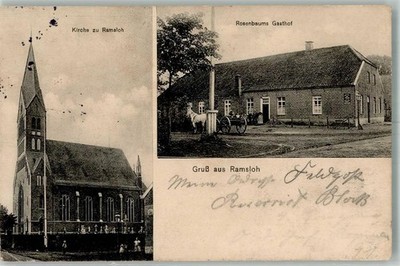 Kirche zu Ramsloh
Rosenbaums Gasthof
Gruß aus Ramsloh
Meine Adresse Feldgohr
Reservist Block